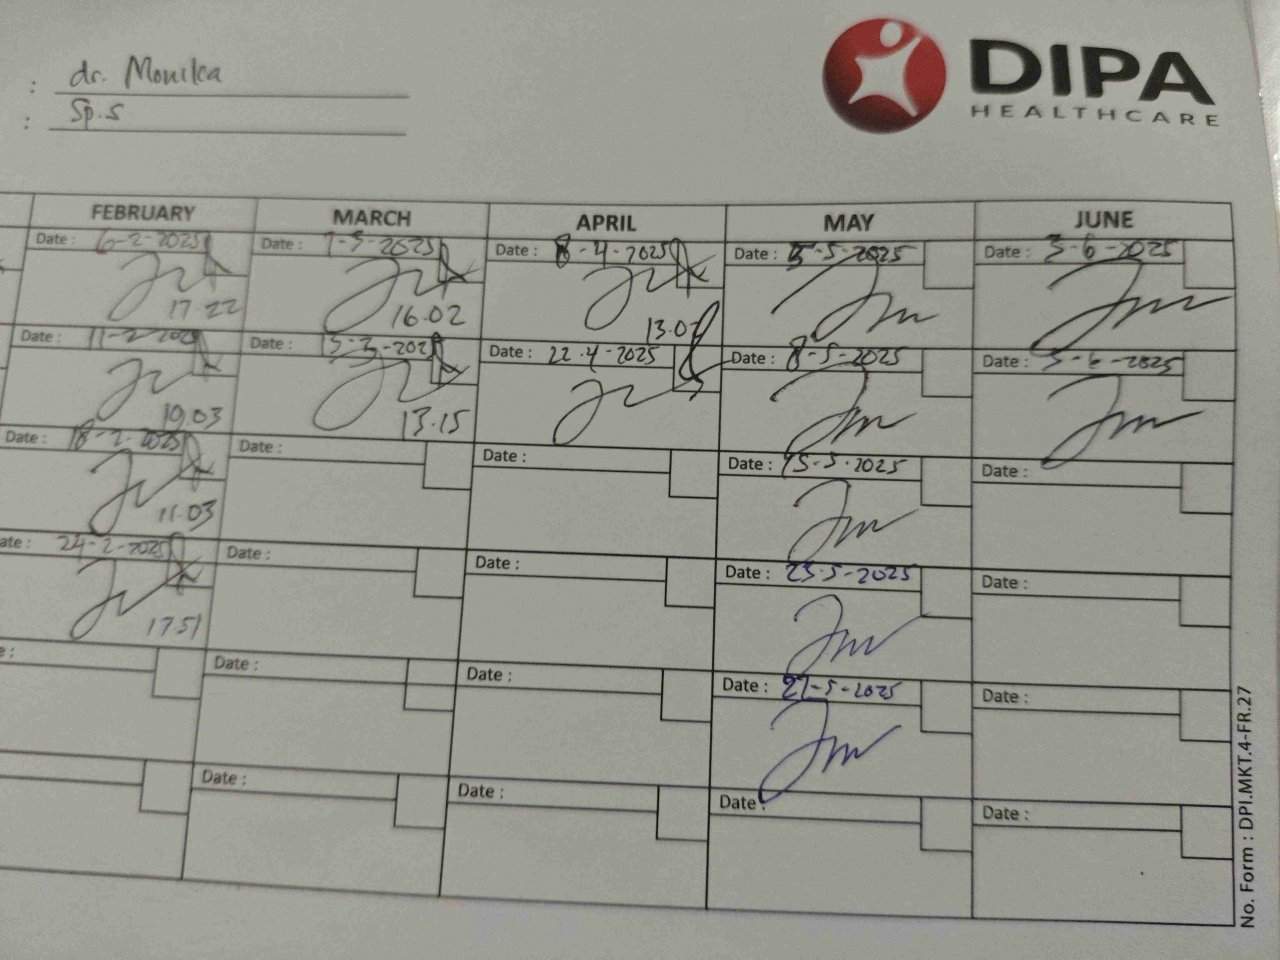 : dr. Monika
: Sp.S
DIPA
HEALTHCARE
FEBRUARY MARCH APRIL MAY JUNE
Date : 6-2-2025 Date : 7-3-2025 Date : 8-4-2025 Date : 5-5-2025 Date : 3-6-2025
17.22 16.02 13.07
Date : 11-2-2025 Date : 13-3-2025 Date : 22.4-2025 Date : 8-5-2025 Date : 5-6-2025
19.03 13.15
Date : 18-2-2025 Date : Date : Date : 15-5-2025 Date :
11.03
ate : 24-2-2025 Date : Date : Date : 23-5-2025 Date :
17.51
e : Date : Date : Date : 27-5-2025 Date :
Date : Date : Date : Date :
No. Form : DPI.MKT.4-FR.27